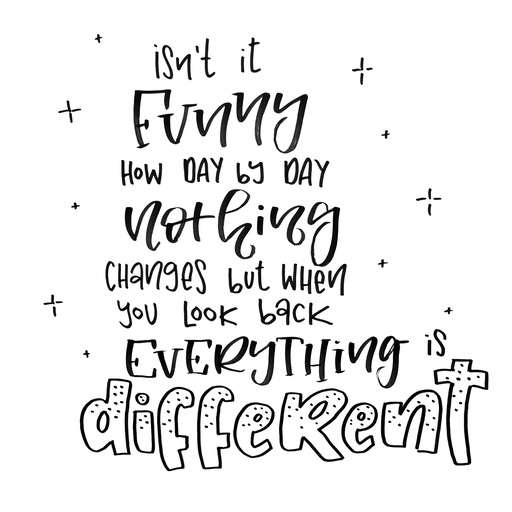 isn't it
Funny
HOW DAY by DAY
nothing
CHANGES but WHEN
you LOOK bACK
EVERYTHing is
differenT